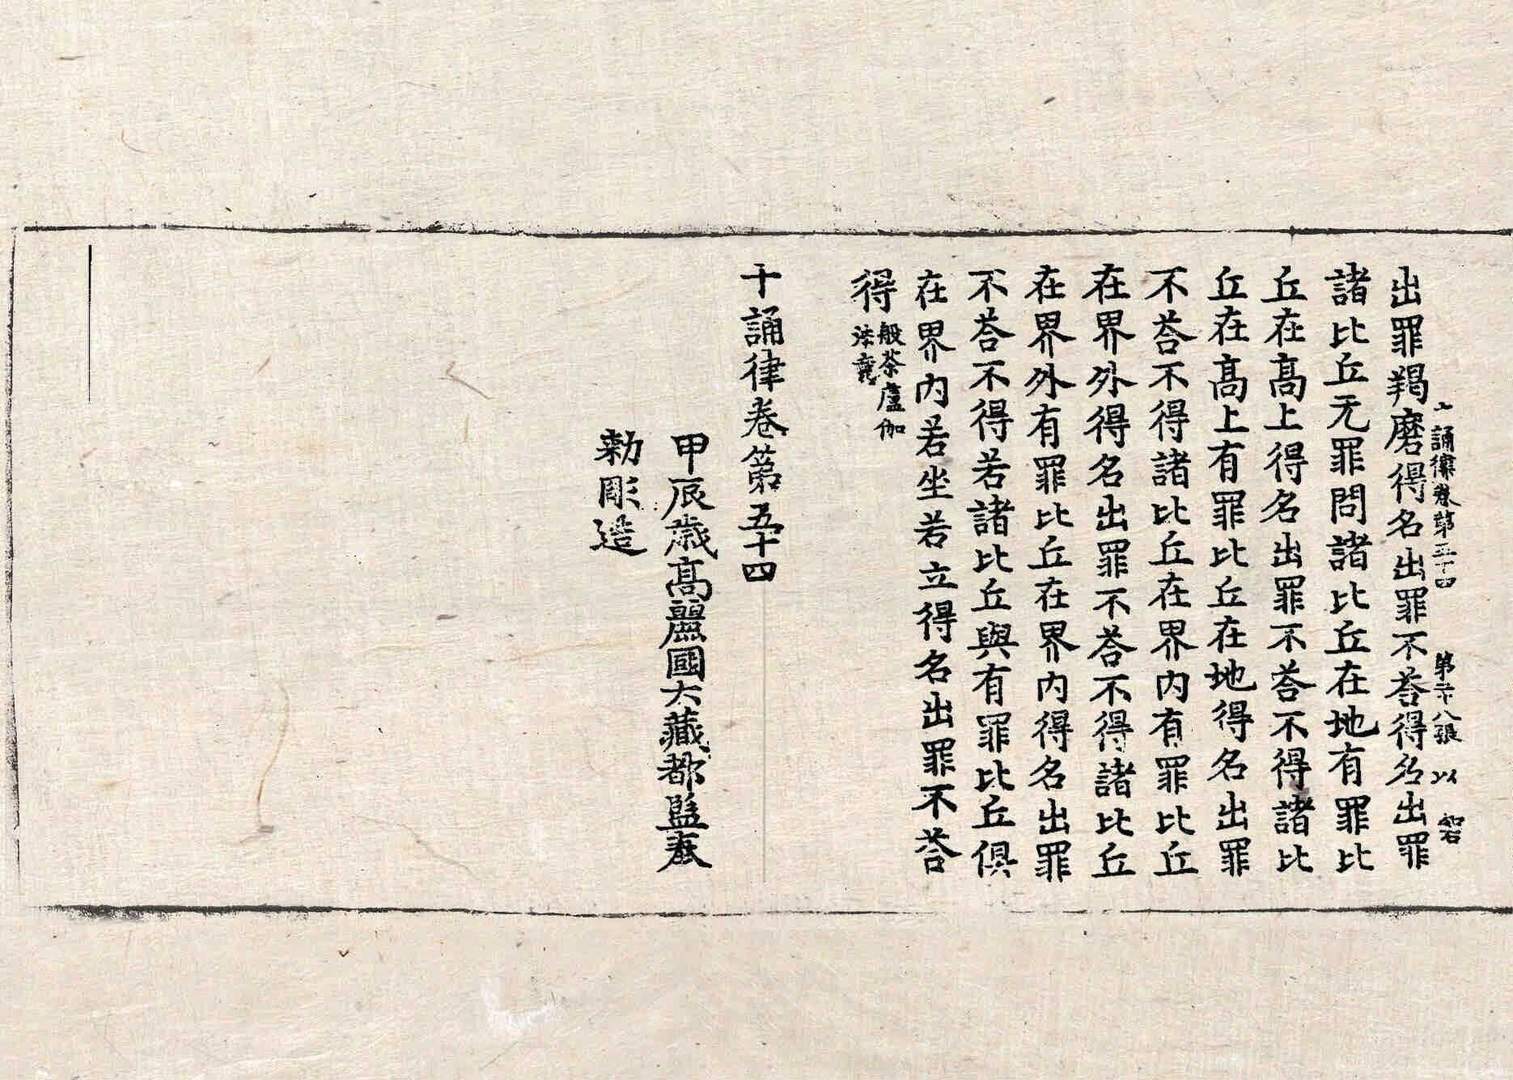 十誦律卷第五十四 第二十八張 以
出罪羯磨得名出罪不荅得名出罪
諸比丘无罪問諸比丘在地有罪比
丘在髙上得名出罪不荅不得諸比
丘在髙上有罪比丘在地得名出罪
不荅不得諸比丘在界内有罪比丘
在界外得名出罪不荅不得諸比丘
在界外有罪比丘在界内得名出罪
不荅不得若諸比丘與有罪比丘俱
在界内若坐若立得名出罪不荅
得
般茶盧伽
法竟
十誦律卷第五十四
甲辰歳髙麗國大藏都監奉
勅彫造